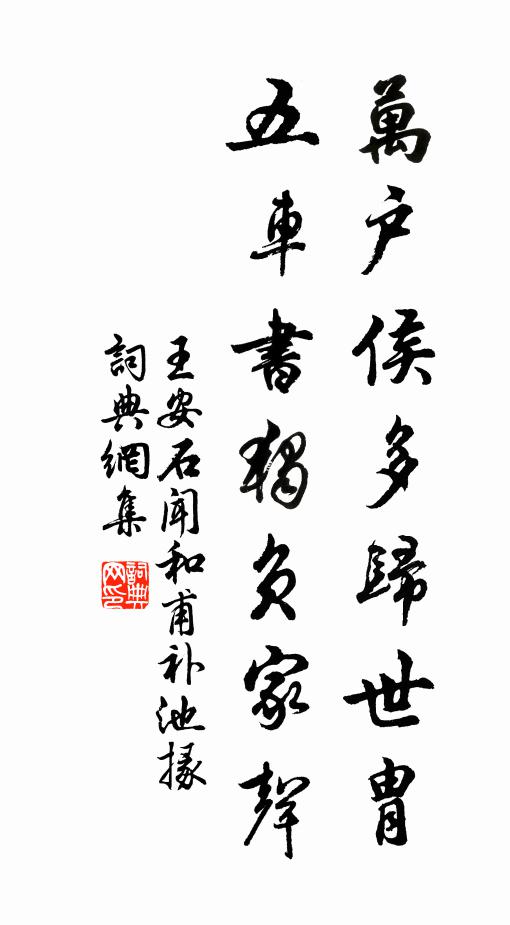 萬户侯多歸世胄
五車書獨負家聲
王安石聞和甫补池掾
詞典網集
詞典网印